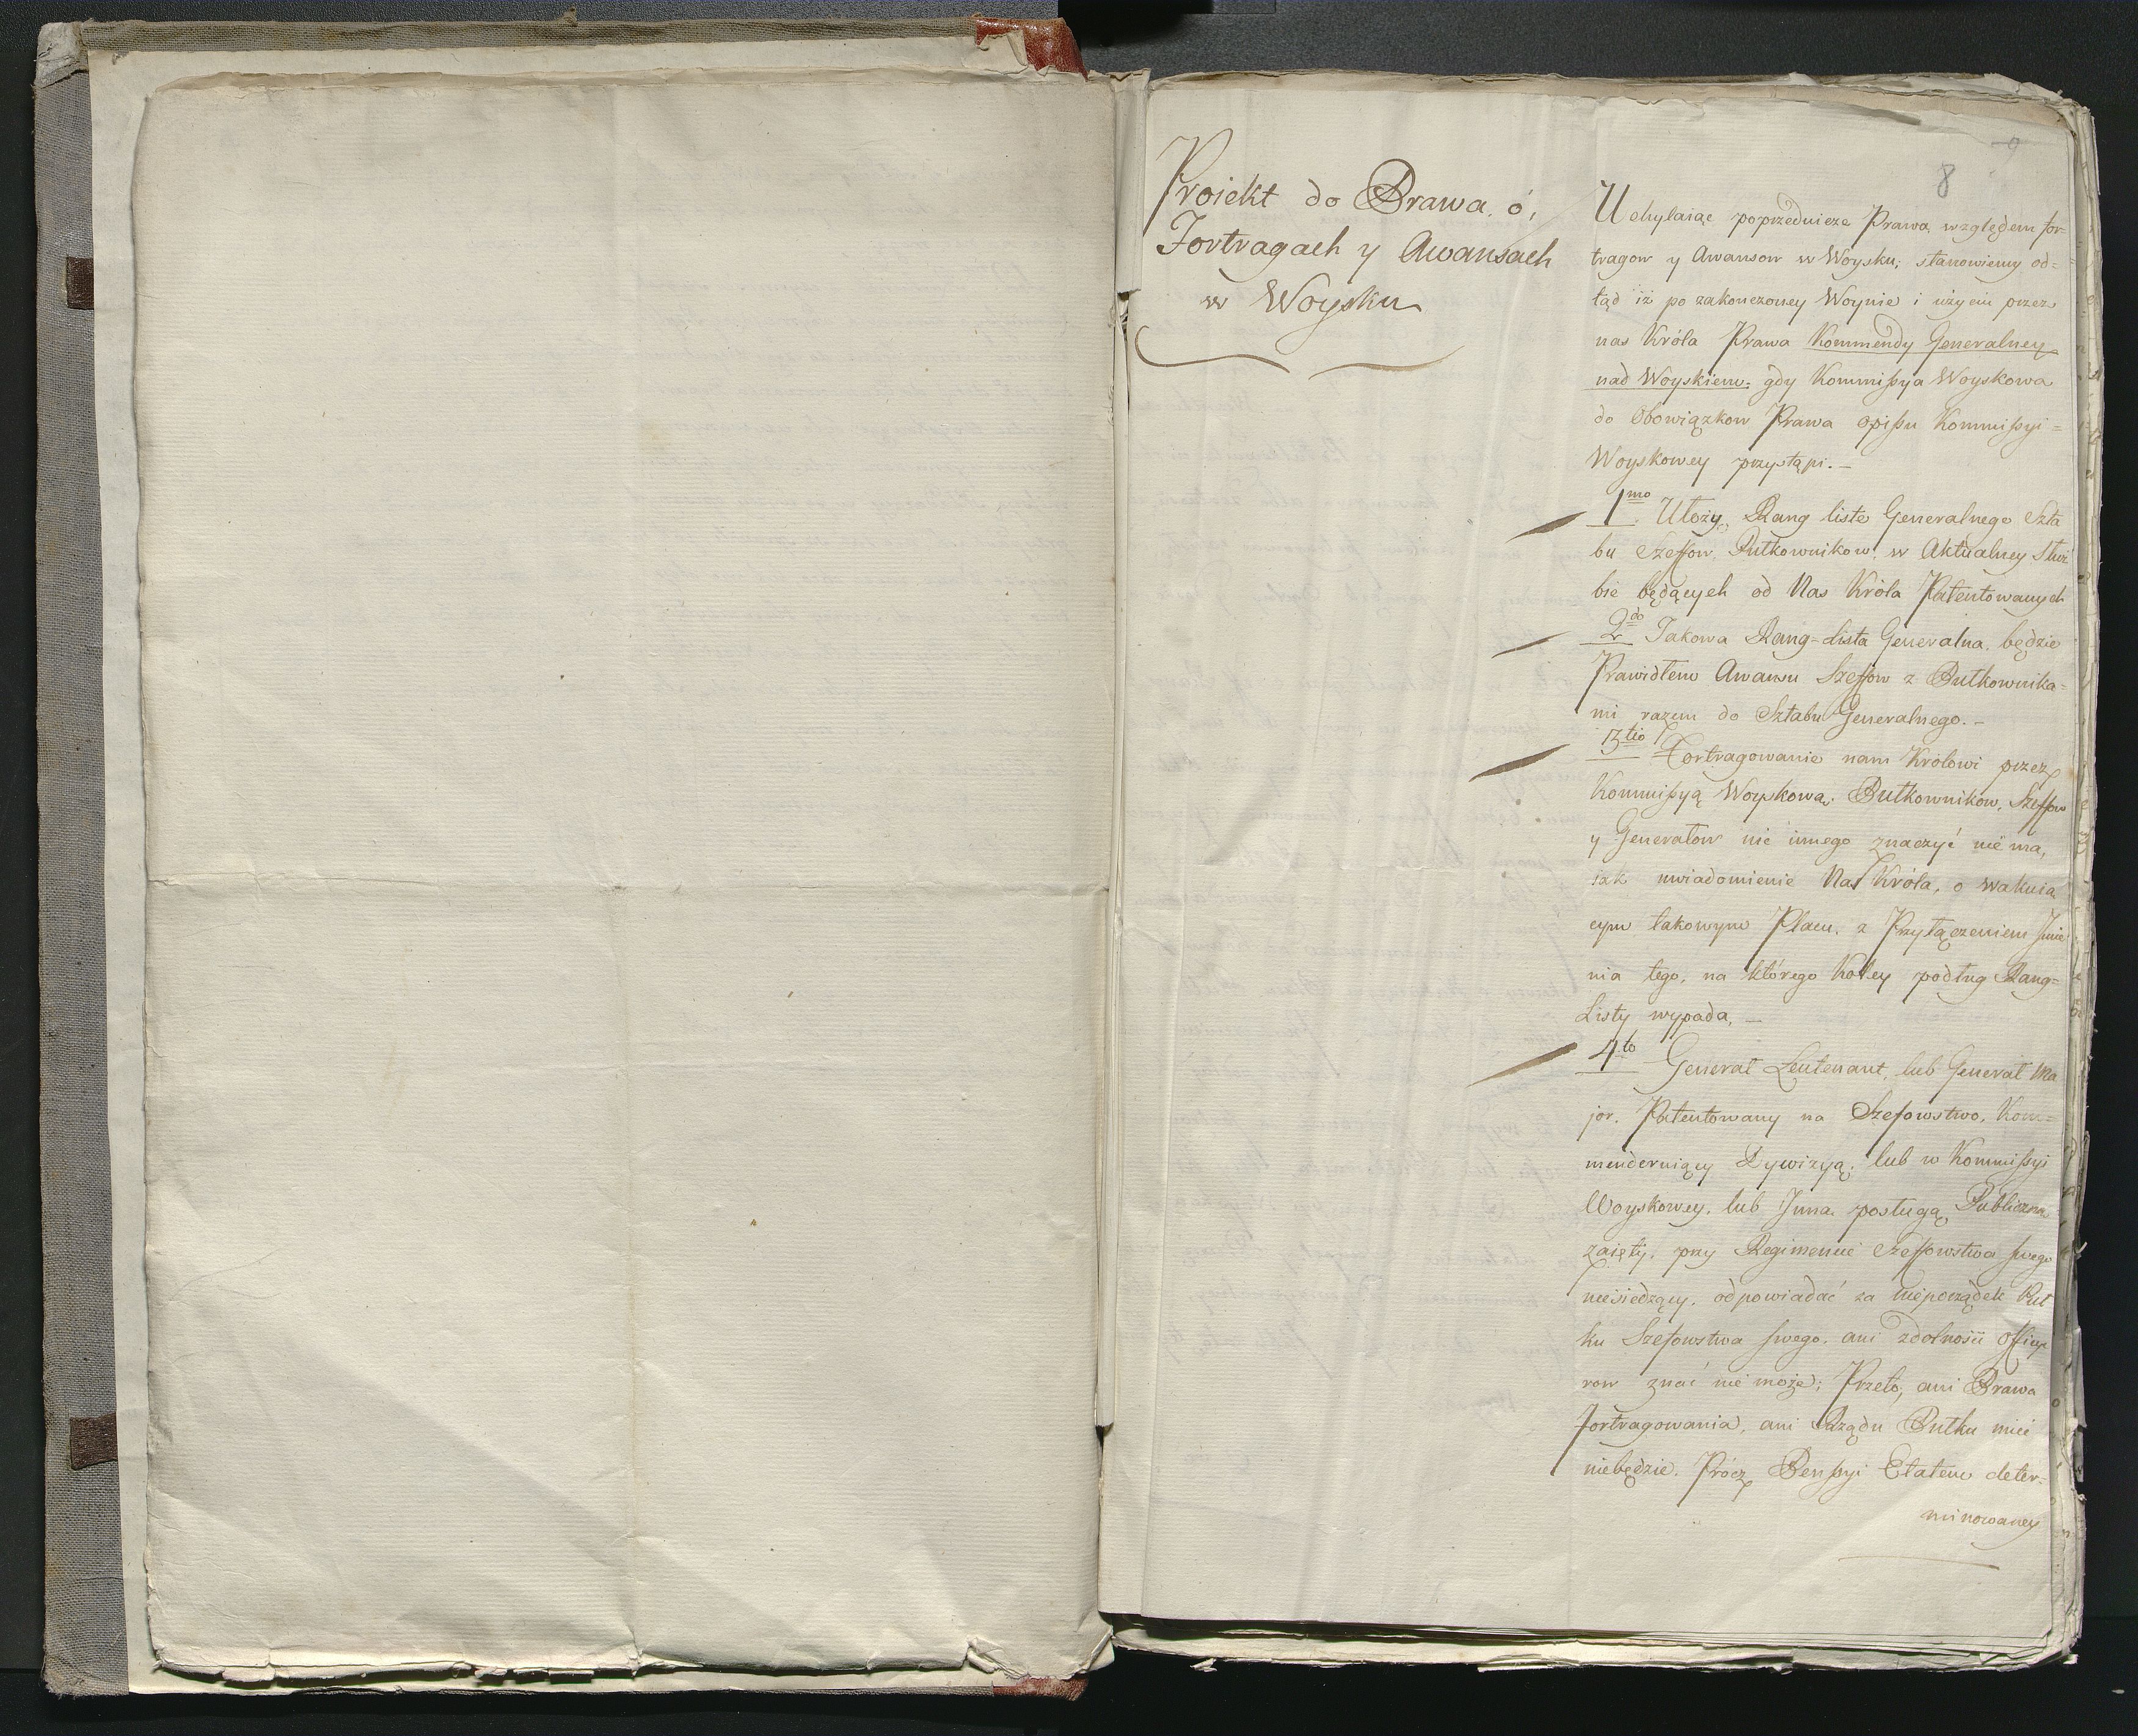 9
8
Proiekt do Prawa, ó,
Fortragach y Awansach
w Woysku
Uchylaiąc poprzednicze Prawa względem for=
tragow y Awansow w Woysku; stanowiemy od=
tąd iż po zakonczoney Woynie i użyciu przez
nas Króla Prawa Kommendy Generalney
nad Woyskiem, gdy Kommißya Woyskowa
do Obowiązkow Prawa opißu Kommißyi=
Woyskowey przystąpi. –
1mo Ułoży, Rang liste Generalnego Szta
bu Szeffow, Pułkownikow, w Aktualney Służ
bie będących od Nas Króla Patentowanych
2do Takowa Rang=Lista Generalna, będzie
Prawidłem Awansu Szeffow z Pułkownika=
mi razem do Sztabu Generalnego. –
3tio Fortragowanie nam Królowi przez
Kommißyą Woyskową, Pułkownikow, Szeffow
y Generałow nic innego znaczyć nie ma,
iak uwiadomienie Nas Króla, o wakuią
cym takowym Placu, z Przyłączeniem Jmie
nia tego, na którego Koley podług Rang=
Listy wypada, –
4to Generał Leutenant, lub Generał Ma
jor, Patentowany na Szefowstwo, Kom=
menderuiący Dywizyą, lub w Kommißyi
Woyskowey, lub Jnną posługą Publiczną
zaięty, przy Regimencie Szeffowstwa swego
niesiedzący, odpowiadać za nieporządek Puł
ku Szefowstwa swego, ani zdolności officye
row znać nie może; Przeto, ani Prawa
fortragowania, ani Rządu Pułku mieć
niebędzie, Prócz Penßyi Etatem deter=
minowaney